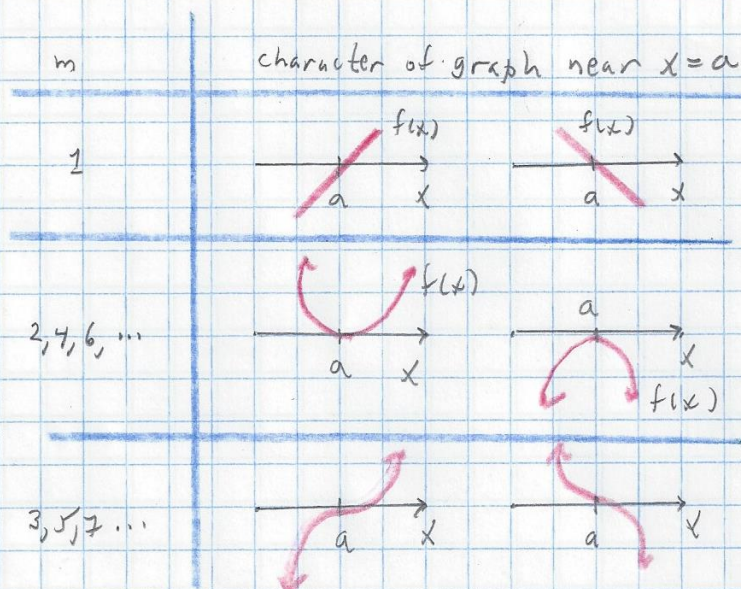 m character of graph near x = a
f(x) f(x)
1
a x a x
f(x) a
2,4,6, ...
a x x
f(x)
3,5,7 ...
a x a x